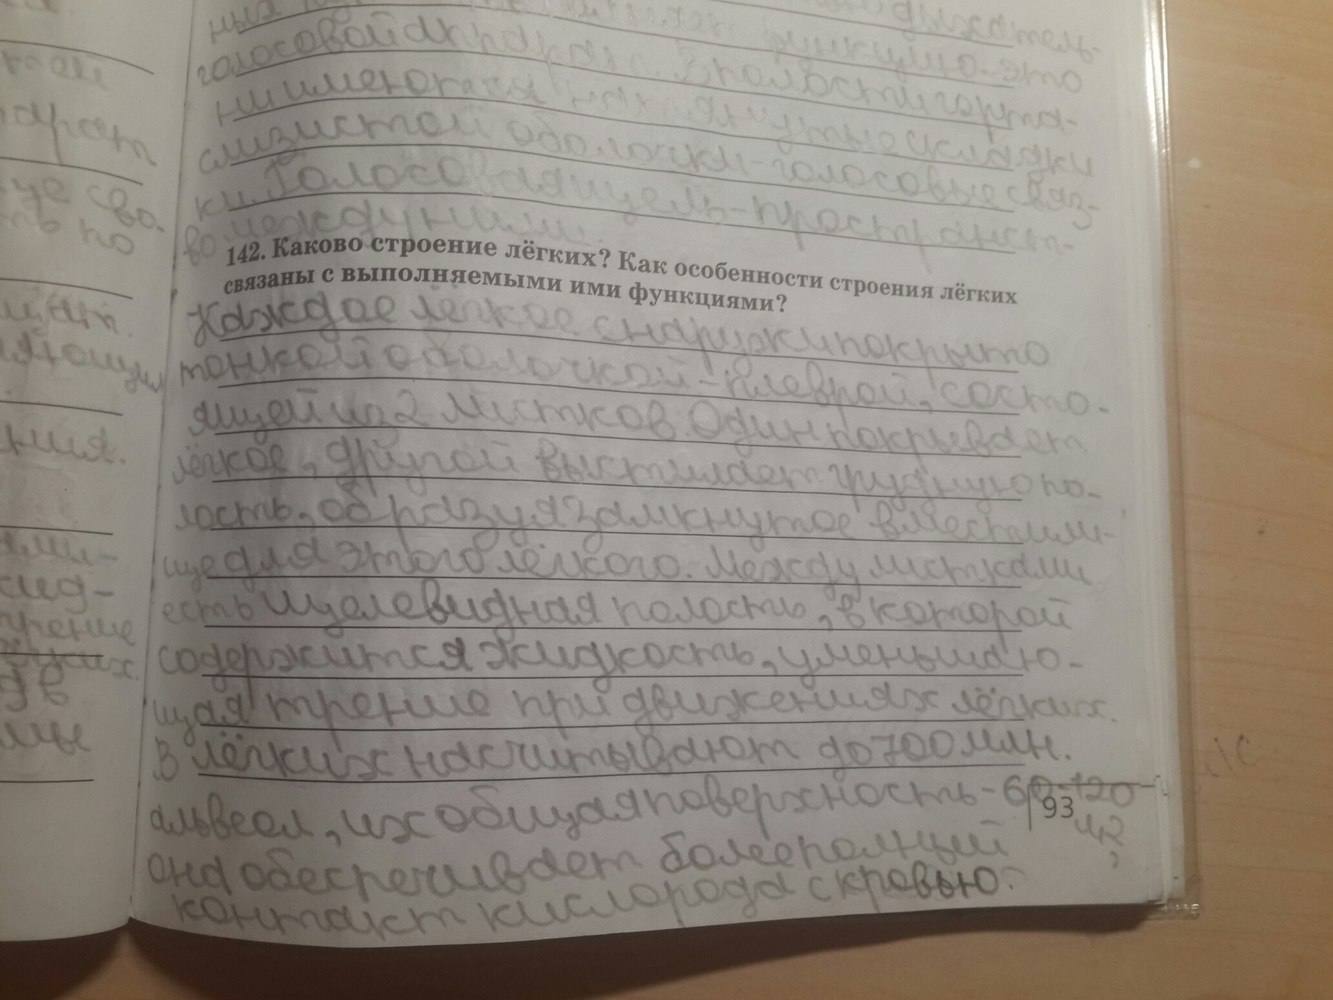 дыхатель-
голосовой аппарат. В полости горта-
ни имеются натянутые складки
слизистой оболочки-голосовые связ-
ки. Голосовая щель-пространст-
во между ними.
142. Каково строение лёгких? Как особенности строения лёгких
связаны с выполняемыми ими функциями?
Каждое лёгкое снаружи покрыто
тонкой оболочкой-плеврой, состо-
ящей из 2 листков. Один покрывает
лёгкое, другой выстилает грудную по-
лость, образуя замкнутое вместили-
ще для этого лёгкого. Между листками
есть щелевидная полость, в которой
содержится жидкость, уменьшаю-
щая трение при движениях лёгких.
В лёгких насчитывают до 700 млн.
альвеол, их общая поверхность-60-120
м2,
она обеспечивает более полный
контакт кислорода с кровью.
93